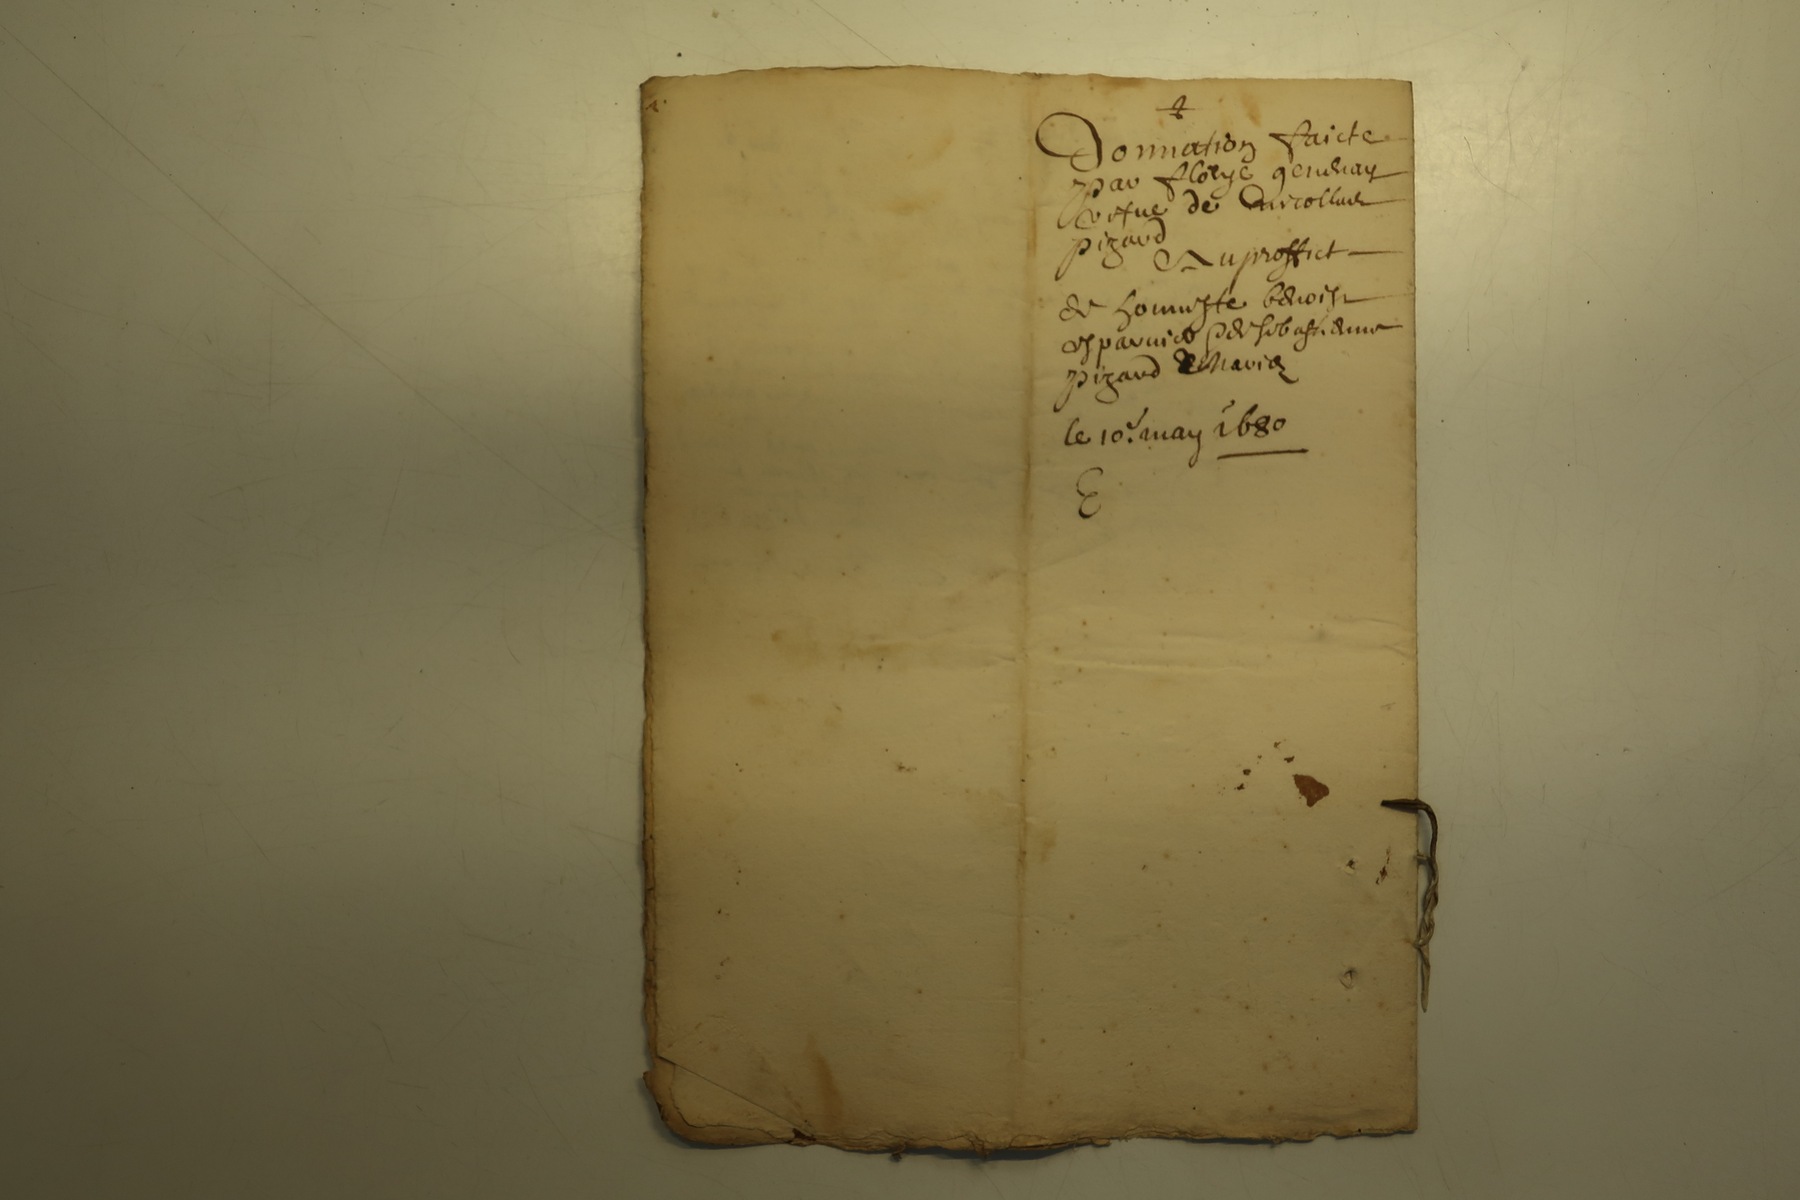 Donnation faicte
par florye gendray
vefve de
pizard
Au proffict
de honneste benoist
esparvier & de sebastienne
pizard & mariez
le 10e. may 1680
E